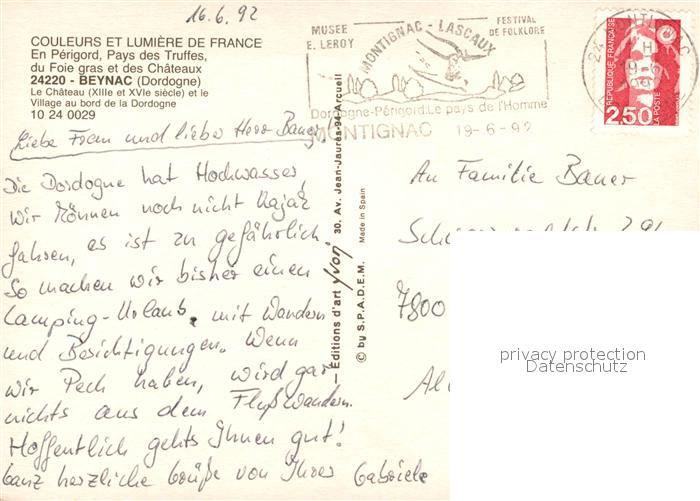 16.6.92
COULEURS ET LUMIÈRE DE FRANCE
En Périgord, Pays des Truffes,
du Foie gras et des Châteaux
24220 - BEYNAC (Dordogne)
Le Château (XIIIe et XVIe siècle) et le
Village au bord de la Dordogne
10 24 0029
MUSEE
E. LEROY
MONTIGNAC - LASCAUX
FESTIVAL
DE FOLKLORE
Dordogne-Périgord. Le pays de l'Homme
MONTIGNAC 19-6-92
RÉPUBLIQUE FRANÇAISE
LA POSTE
2,50
Liebe Frau und lieber Herr Bauer,
Die Dordogne hat Hochwasser,
wir können noch nicht Kajak
fahren, es ist zu gefährlich
So machen wir bisher einen
Camping-Urlaub, mit Wandern
und Besichtigungen. Wenn
wir Pech haben, wird gar
nichts aus dem Flußwandern.
Hoffentlich gehts Ihnen gut!
Ganz herzliche Grüße von Ihrer Gabriele
— Éditions d'art yvon 30, Av. Jean-Jaurès-94-Arcueil
© by S.P.A.D.E.M. Made in Spain
An Familie Bauer
7800
privacy protection
Datenschutz